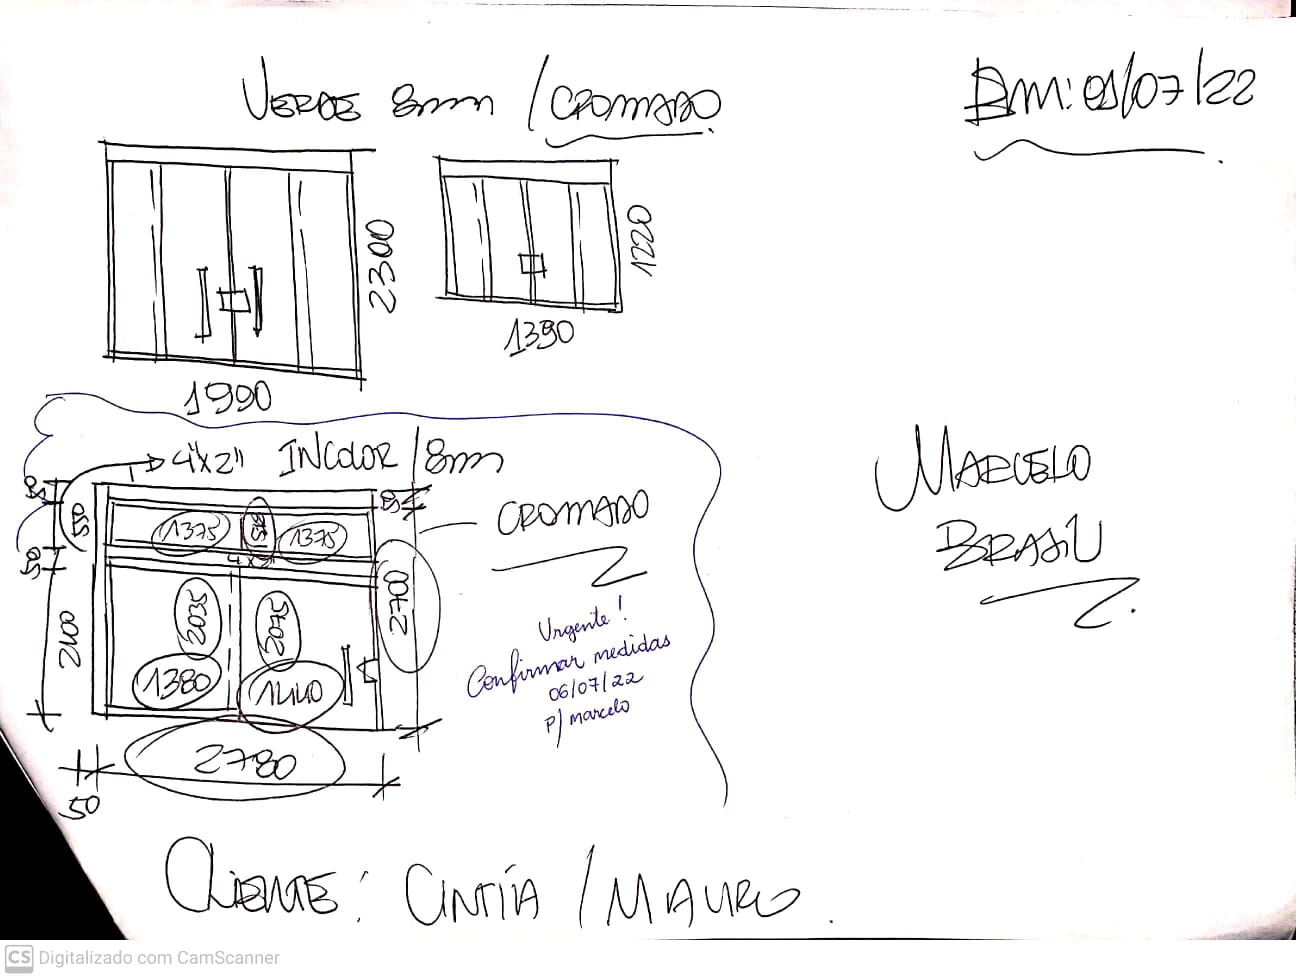 VERDE 8mm / CROMADO
Em: 01/07/22
2300
1220
1390
1990
4"x2" INCOLOR / 8mm
CROMADO
MARCELO
BRASIL
50
50
550
1375
515
1375
50
2700
2035
2075
2100
1380
1440
Urgente!
Confirmar medidas
06/07/22
p/ marcelo
2780
50
CLIENTE: CINTÍA / MAURO.
CS Digitalizado com CamScanner